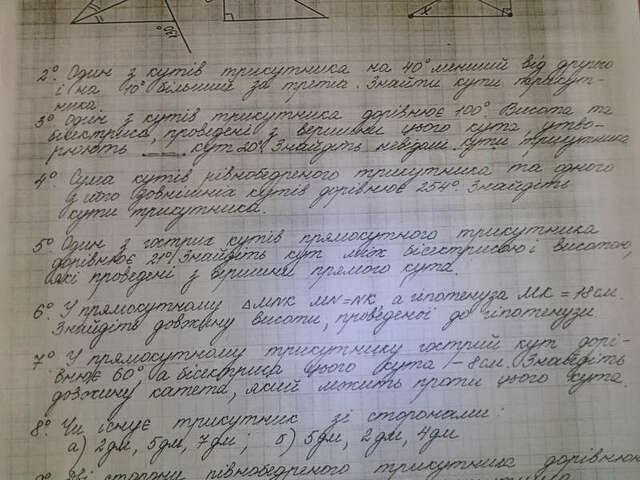 130°
x
2° Один з кутів трикутника на 40° менший від другого
і на 10° більший за третій. Знайти кути трикут-
ника.
3° Один з кутів трикутника дорівнює 100°. Висота та
бісектриса, проведені з вершини цього кута, утво-
рюють кут 20°. Знайдіть невідомі кути трикутника
4° Сума кутів рівнобедреного трикутника та одного
з його зовнішніх кутів дорівнює 254°. Знайдіть
кути трикутника.
5° Один з гострих кутів прямокутного трикутника
дорівнює 21°. Знайдіть кут між бісектрисою і висотою,
які проведені з вершини прямого кута.
6° У прямокутному ΔMNK MN=NK, а гіпотенуза MK = 18 см.
Знайдіть довжину висоти, проведеної до гіпотенузи
7° У прямокутному трикутнику гострий кут дорі-
внює 60°, а бісектриса цього кута – 8 см. Знайдіть
довжину катета, який лежить проти цього кута.
8° Чи існує трикутник зі сторонами:
а) 2 дм, 5 дм, 7 дм ; б) 5 дм, 2 дм, 4 дм
9° Дві сторони рівнобедреного трикутника дорівнюю